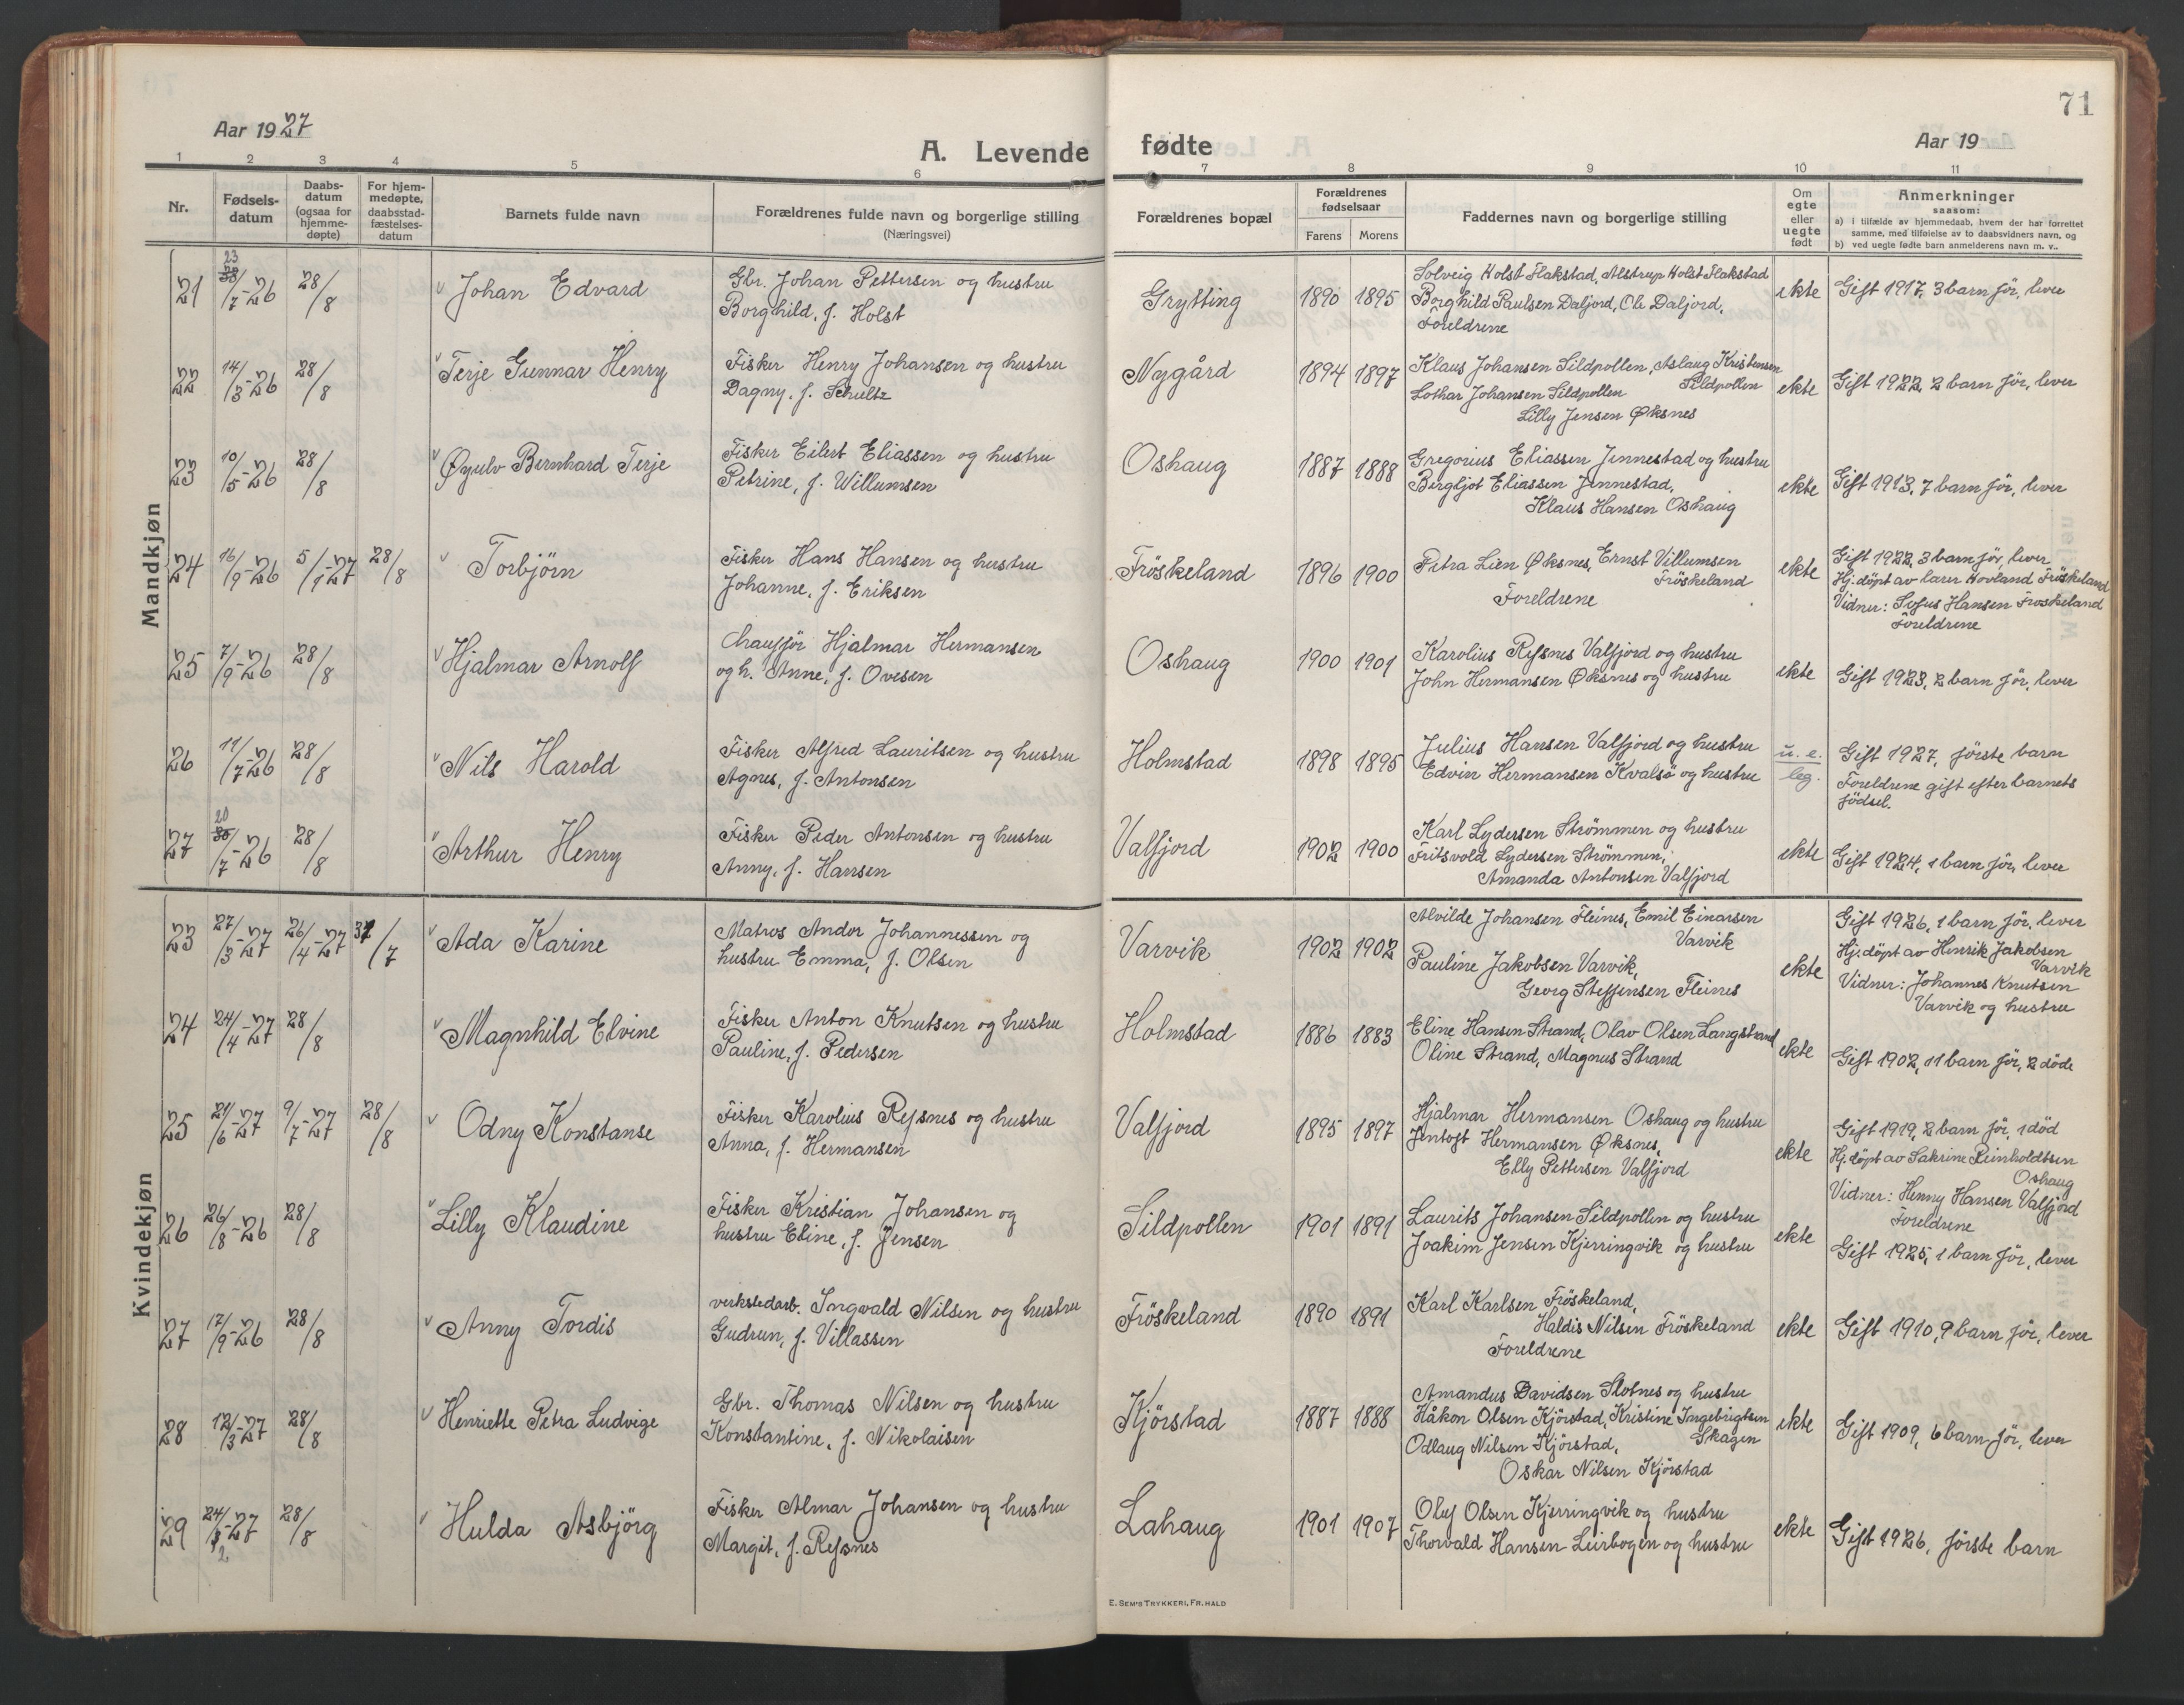 71
Aar 1927
A. Levende fødte
Aar 19
1 2 3 4 5 6 7 8 9 10 11
Nr.
Fødsels-
datum
Daabs-
datum
(ogsaa for
hjemme-
døpte)
For hjem-
medøpte,
daabsstad-
fæstelses-
datum
Barnets fulde navn
Forældrenes fulde navn og borgerlige stilling
(Næringsvei)
Forældrenes bopæl
Forældrenes
fødselsaar
Farens Morens
Faddernes navn og borgerlige stilling
Om
egte
eller
uegte
født
Anmerkninger
saasom:
a) i tilfælde av hjemmedaab, hvem der har forrettet
samme, med tilføielse av to daabsvidners navn, og
b) ved uegte fødte barn anmelderens navn m. v..
Mandkjøn
21 23/7-26 28/8 Johan Edvard
Gbr. Johan Pettersen og hustru
Borghild, f. Holst
Grytting 1890 1895
Solveig Holst Flakstad, Alstrup Holst Flakstad
Borghild Paulsen Daljord, Ole Daljord,
Foreldrene
ekte Gift 1917, 3 barn før, lever
22 14/3-26 28/8 Terje Gunnar Henry
Fisker Henry Johansen og hustru
Dagny, f. Schultz
Nygård 1894 1897
Klaus Johansen Sildpollen, Aslaug Kristensen
Sildpollen
Lothar Johansen Sildpollen
Lilly Jensen Øksnes
ekte Gift 1922, 2 barn før, lever
23 10/5-26 28/8 Øyulv Bernhard Terje
Fisker Eilert Eliassen og hustru
Petrine, f. Willumsen
Oshaug 1887 1888
Gregorius Eliassen Jennestad og hustru
Bergljot Eliassen Jennestad,
Klaus Hansen Oshaug
ekte Gift 1913, 7 barn før, lever
24 16/9-26 5/1-27 28/8 Torbjörn
Fisker Hans Hansen og hustru
Johanne, f. Eriksen
Fröskeland 1896 1900
Petra Lien Øksnes, Ernst Villumsen
Fröskeland
Foreldrene
ekte Gift 1922, 3 barn før, lever
Hj. döpt av lærer Hovland Fröskeland
Vidner: Sofus Hansen Froskeland
Foreldrene
25 7/9-26 28/8 Hjalmar Arnolf
Chauffør Hjalmar Hermansen
og h. Anne, f. Ovesen
Oshaug 1900 1901
Karolius Refsnes Valfjord og hustru
John Hermansen Øksnes og hustru
ekte Gift 1923, 2 barn før, lever
26 11/7-26 28/8 Nils Harold
Fisker Alfred Lauritsen og hustru
Agnes, f. Antonsen
Holmstad 1898 1895
Julius Hansen Valfjord og hustru
Edvin Hermansen Kvalsö og hustru
u. e.
leg.
Gift 1927, förste barn
Foreldrene gift efter barnets
födsel.
27 20/7-26 28/8 Arthur Henry
Fisker Peder Antonsen og hustru
Anny, f. Hansen
Valfjord 1902 1900
Karl Lydersen Strömmen og hustru
Fritsvold Lydersen Strömmen,
Amanda Antonsen Valfjord
ekte Gift 1924, 1 barn før, lever
Kvindekjøn
23 27/3-27 26/4-27 31/7 Ada Karine
Matros Andor Johannessen og
hustru Emma, f. Olsen
Varvik 1902 1902
Alvilde Johansen Fleines, Emil Einarsen
Varvik
Pauline Jakobsen Varvik,
Georg Steffensen Fleines
ekte
Gift 1926, 1 barn før, lever
Hj. döpt av Henrik Jakobsen
Varvik
Vidner: Johannes Knutsen
Varvik og hustru
24 24/4-27 28/8 Magnhild Elvine
Fisker Anton Knutsen og hustru
Pauline, f. Pedersen
Holmstad 1886 1883
Eline Hansen Strand, Olav Olsen Langstrand
Oline Strand, Magnus Strand
ekte Gift 1902, 11 barn før, 2 döde
25 21/6-27 9/7-27 28/8 Odny Konstanse
Fisker Karolius Refsnes og hustru
Anna, f. Hermansen
Valfjord 1895 1897
Hjalmar Hermansen Oshaug og hustru
Jentoft Hermansen Øksnes,
Elly Pettersen Valfjord
ekte
Gift 1919, 2 barn før, 1 död
Hj. döpt av Sakrine Reinholdtsen
Oshaug
Vidner: Henny Hansen Valfjord
Foreldrene
26 26/8-26 28/8 Lilly Klaudine
Fisker Kristian Johansen og
hustru Eline, f. Jensen
Sildpollen 1901 1891
Laurits Johansen Sildpollen og hustru
Joakim Jensen Kjerringvik og hustru
ekte
Gift 1925, 1 barn før, lever
27 17/9-26 28/8 Anny Tordis
verkstedarb. Ingvald Nilsen og hustru
Gudrun, f. Villassen
Fröskeland 1890 1891
Karl Karlsen Fröskeland,
Haldis Nilsen Fröskeland
Foreldrene
ekte Gift 1910, 9 barn før, lever
28 12/3-27 28/8 Henriette Petra Ludvige
Gbr. Thomas Nilsen og hustru
Konstantine, f. Nikolaisen
Kjörstad 1887 1888
Amandus Davidsen Slotnes og hustru
Håkon Olsen Kjörstad, Kristine Ingebrigtsen
Skagen
Odlaug Nilsen Kjörstad,
Oskar Nilsen Kjörstad
ekte Gift 1909, 6 barn før, lever
29 24/2-27 28/8 Hulda Asbjörg
Fisker Almar Johansen og hustru
Margit, f. Refsnes
Lahaug 1901 1907
Oluf Olsen Kjerringvik og hustru
Thorvald Hansen Leirbogen og hustru
ekte Gift 1926, förste barn
E. SEM'S TRYKKERI, FR.HALD